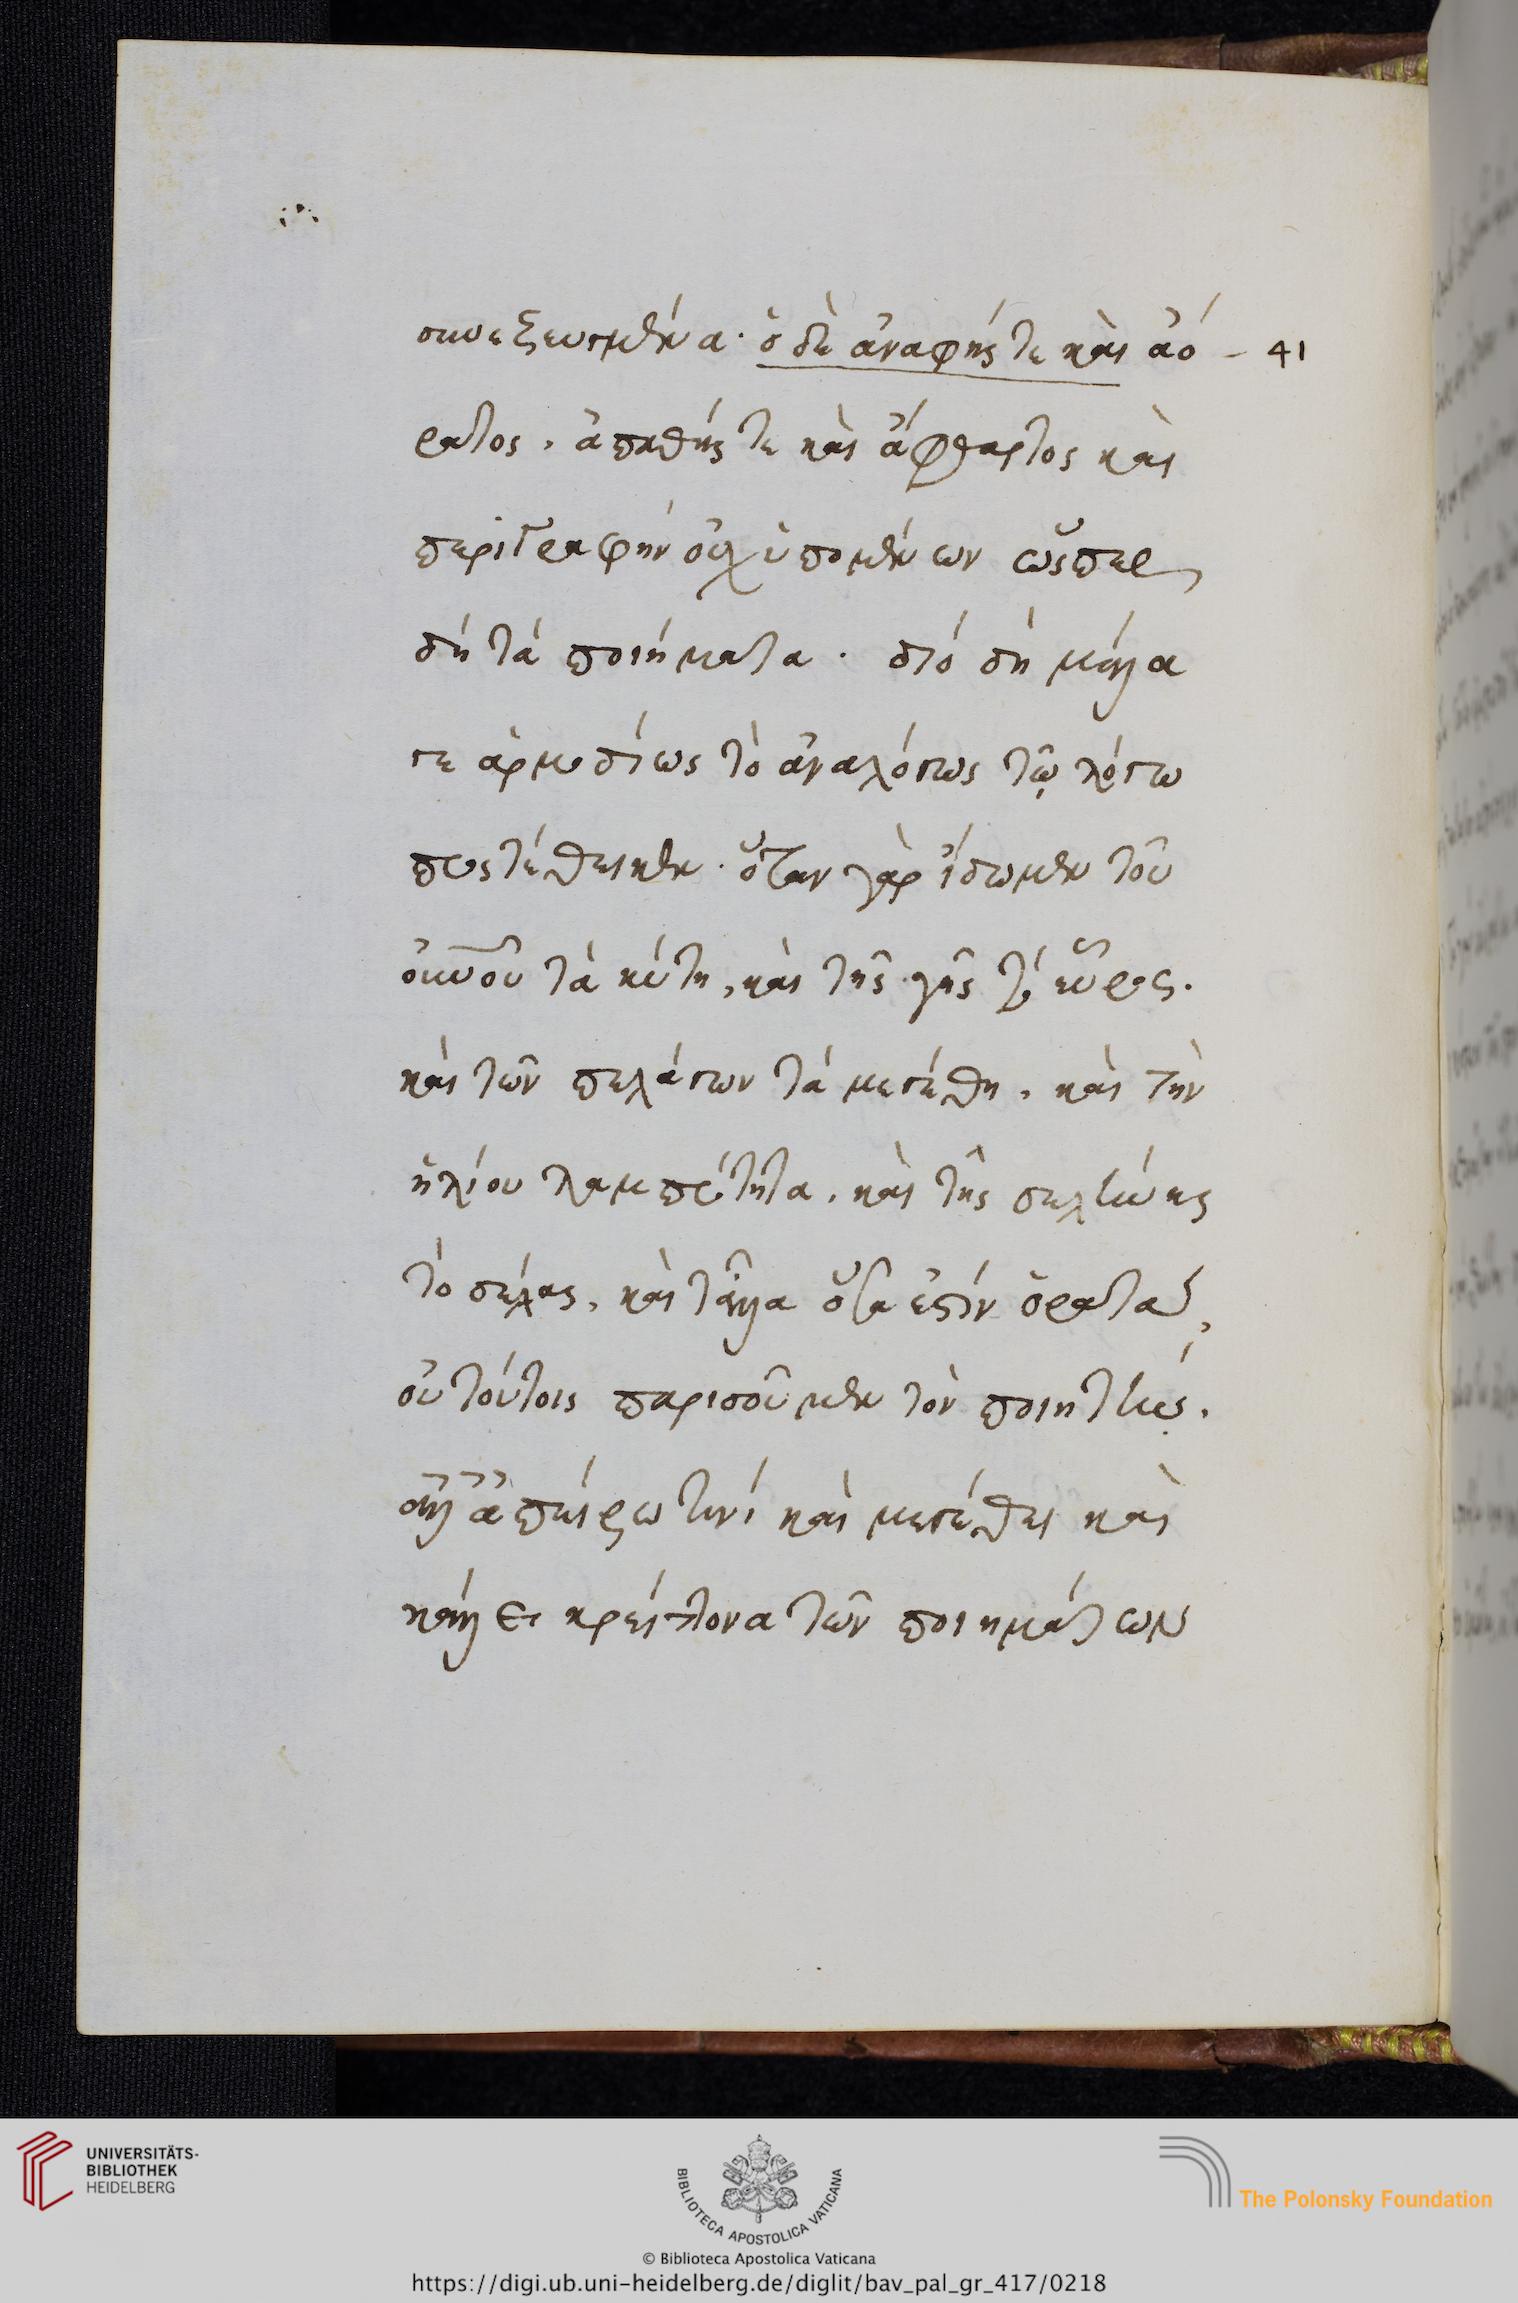 συνεξευγμένα · ὁ δὲ ἀναφής τε καὶ ἀό – 41
ρατος, ἀπαθής τε καὶ ἄφθαρτος καὶ
περιγραφήν οὐχ ὑπομένων ὥσπερ
δή τά ποιήματα · διό δή μάλα
γε ἁρμοδίως τὸ ἀναλόγως τῷ λόγω
προστέθεικεν · ὅταν γὰρ ἴδωμεν τοῦ
οὐνοῦ τὰ κύτη, καὶ τῆς γῆς τό εὖρος.
καὶ τῶν πελάγων τά μεγέθη, καὶ τὴν
ἡλίου λαμπρότητα, καὶ τῆς σελήνης
τό σέλας, καὶ τἆλλα ὅσα ἐστίν ὁρατά,
οὐ τούτοις παρισοῦμεν τὸν ποιητήν.
ἀλλ ἀπείρω τινί καὶ μεγέθει καὶ
κάλλει κρείττονα τῶν ποιημάτων
UNIVERSITÄTS-
BIBLIOTHEK
HEIDELBERG
BIBLIOTECA APOSTOLICA VATICANA
The Polonsky Foundation
© Biblioteca Apostolica Vaticana
https://digi.ub.uni-heidelberg.de/diglit/bav_pal_gr_417/0218